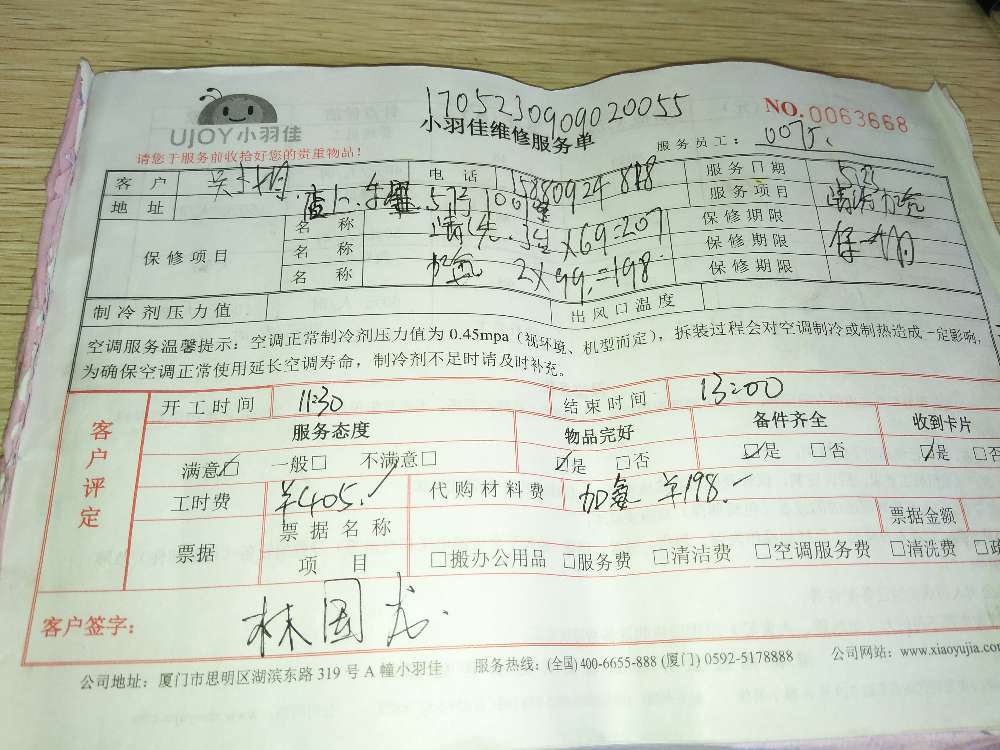 1705230909020055
UJOY小羽佳
小羽佳维修服务单
NO.0063668
请您于服务前收拾好您的贵重物品!
服务员工:
客户 电话 服务日期
地址 服务项目 清洗加氨
保修项目 名称 清洗 3台×69=207 保修期限 保一个月
名称 保修期限
名称 加氨 2×99.=198 保修期限
制冷剂压力值 出风口温度
空调服务温馨提示:空调正常制冷剂压力值为 0.45mpa(视环境、机型而定),拆装过程会对空调制冷或制热造成一定影响,
为确保空调正常使用延长空调寿命,制冷剂不足时请及时补充。
客户评定
开工时间 11:30 结束时间 13:00
服务态度 物品完好 备件齐全 收到卡片
满意☑ 一般□ 不满意□ ☑是 □否 ☑是 □否 ☑是 □否
工时费 ¥405. 代购材料费 加氨 ¥198.-
票据 票据名称 票据金额
项目 □搬办公用品 □服务费 □清洁费 □空调服务费 □清洗费
客户签字: 林国龙
公司地址:厦门市思明区湖滨东路 319 号 A 幢小羽佳 服务热线:(全国) 400-6655-888 (厦门) 0592-5178888 公司网站:www.xiaoyujia.com